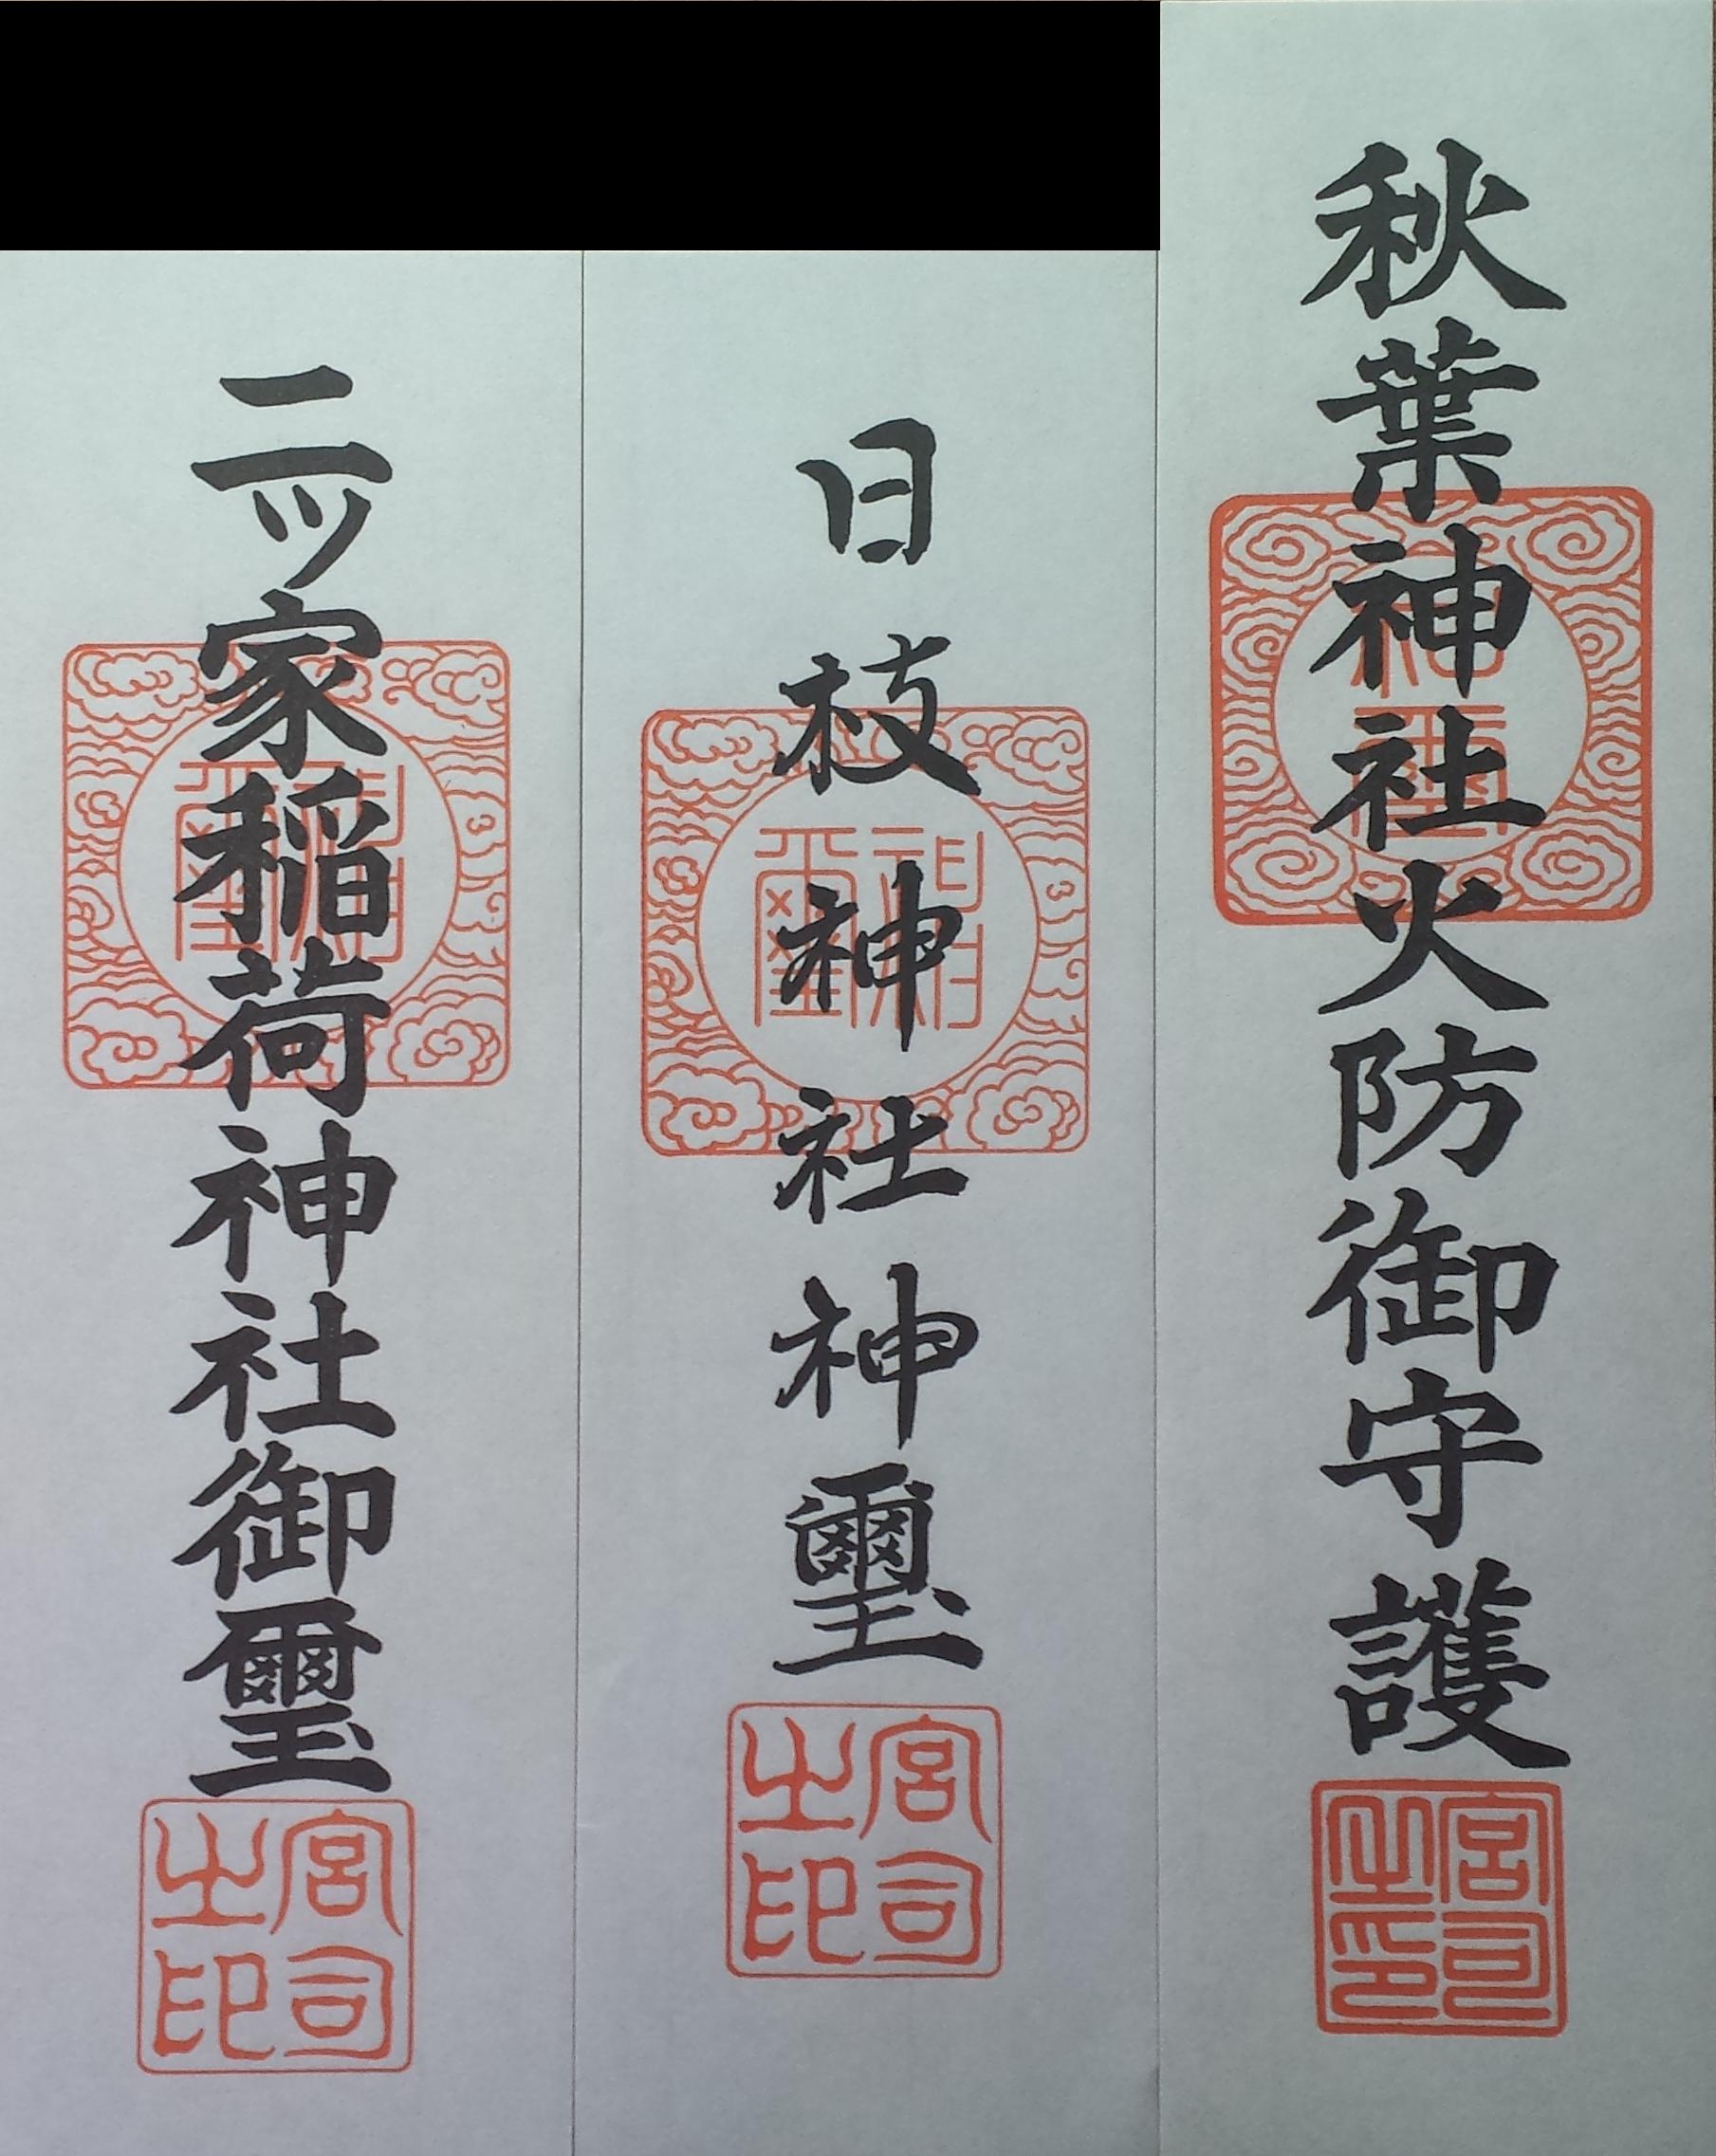 秋葉神社火防御守護
宮司之印
日枝神社神璽
神璽
宮司之印
二ツ家稲荷神社御璽
宮司之印